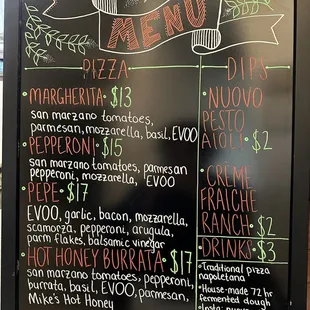 MENU
PIZZA
MARGHERITA • $13
san marzano tomatoes,
parmesan, mozzarella, basil, EVOO
PEPPERONI • $15
san marzano tomatoes, parmesan
pepperoni, mozzarella, EVOO
PEPE • $17
EVOO, garlic, bacon, mozzarella,
scamorza, pepperoni, arugula,
parm flakes, balsamic vinegar
HOT HONEY BURRATA • $17
san marzano tomatoes, pepperoni,
burrata, basil, EVOO, parmesan,
Mike's Hot Honey
DIPS
• NUOVO
PESTO
AIOLI • $2
• CRÈME
FRAÎCHE
RANCH • $2
• DRINKS • $3
• Traditional pizza
napoletana
• House-made 72 hr
fermented dough
• Insta: